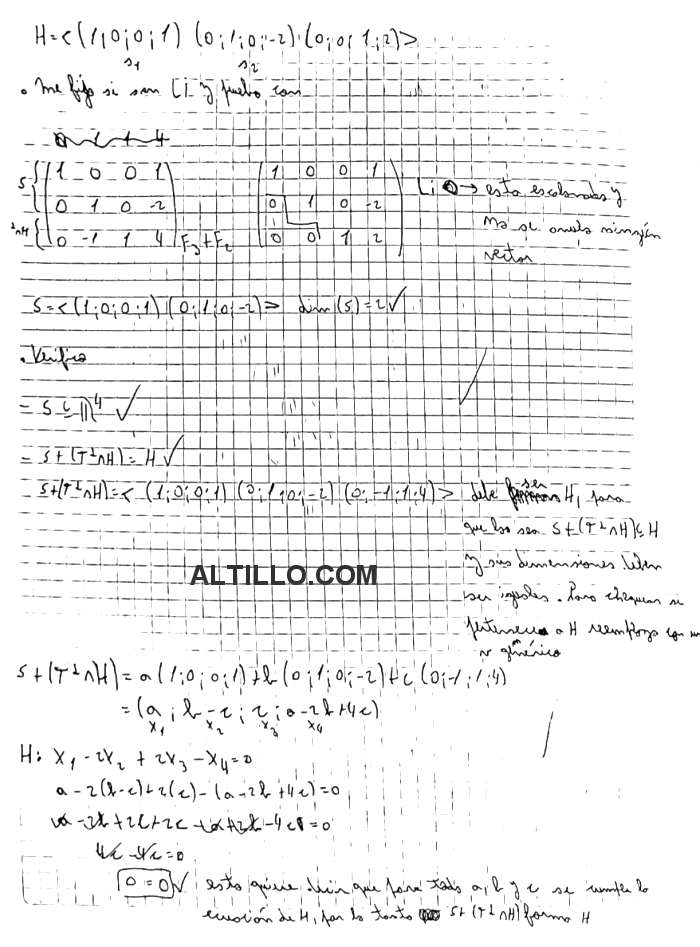 H = <(1;0;0;1) (0;1;0;-2) (0;0;1;2)>
s1 s2
• Me fijo si son Li y pruebo con
0 1 1 4
S { 1 0 0 1
0 1 0 -2
T⊥∩H { 0 -1 1 4 F3+F2
1 0 0 1
0 1 0 -2
0 0 1 2
Li → esta escalonada y
no se anula ningún
vector
S = <(1;0;0;1) (0;1;0;-2)> dim(S) = 2 ✓
• Verifico
- S ⊆ ℝ⁴ ✓
- S+(T⊥∩H) = H ✓
S+(T⊥∩H) = <(1;0;0;1) (0;1;0;-2) (0;-1;1;4)> debe ser H, para
que lo sea S+(T⊥∩H) ⊆ H
y sus dimensiones deben
ser iguales. Para chequear si
pertenece a H reemplazo con un
v genérico
ALTILLO.COM
S+(T⊥∩H) = a(1;0;0;1)+b(0;1;0;-2)+c(0;-1;1;4)
= (a; b-c; c; a-2b+4c)
x1 x2 x3 x4
H: x1 - 2x2 + 2x3 - x4 = 0
a - 2(b-c) + 2(c) - (a-2b+4c) = 0
a - 2b + 2c + 2c - a + 2b - 4c = 0
4c - 4c = 0
0 = 0 ✓ esto quiere decir que para todo a, b y c se cumple la
ecuación de H, por lo tanto S+(T⊥∩H) forma H